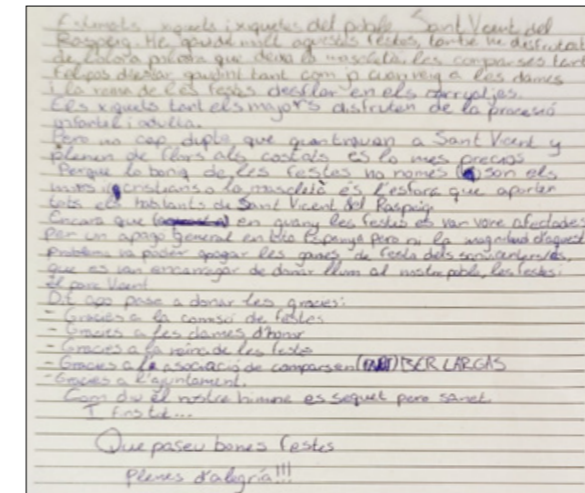 Estimats xiquets i xiquetes del poble Sant Vicent del
Raspeig. He gaudit molt aquestes festes, també he disfrutat
de l'olora pólvora que deixa la mascletà, les comparses tant
feliços desfilar gaudint tant com jo cuan veig a les dames
i la reina de les festes desfilar en els carrutjes.
Els xiquets tant els majors disfruten de la procesó
infantil i adulta.
Pero no cap dupte que quan trauen a Sant Vicent y
plenen de flors als costats es lo mes precios
Perque lo bona de les festes no nomes son els
mors i cristians o la mascletà es l'esforç que aporten
tots els habitants de Sant Vicent del Raspeig
Encara que en guany les festes es van vore afectades
per un apago general en tota Espanya pero ni la magnitud d'aquest
problema va poder apagar les ganes de festa dels sanvicenters/es,
que es van encarregar de donar llum al nostre poble, les festes i
el pare Vicent
Dit aço pase a donar les gracies:
- Gracies a la comisió de festes
- Gracies a les dames d'honor
- Gracies a la reina de les festes
- Gracies a l'asociació de comparses BER LARGAS
- Gracies a l'ajuntament.
Com diu el nostre himne es sequet pero sanet.
I fins tot...
Que paseu bones festes
plenes d'alegría!!!